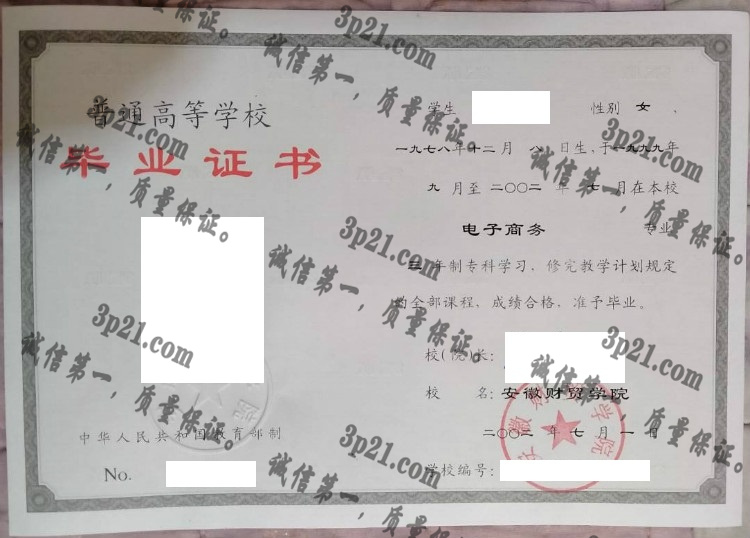 普通高等学校
毕业证书
中华人民共和国教育部制
No.
学生 性别 女 、
一九七八年十二月 八 日生,于一九九九年
九 月至 二〇〇二 年 七 月在本校
电子商务 专业
三 年制专科学习、修完教学计划规定
的全部课程,成绩合格,准予毕业。
校(院)长:
校 名: 安徽财贸学院
二〇〇二 年 七 月 一 日
学校编号:
3p21.com
诚信第一,质量保证。
3p21.com
诚信第一,质量保证。
3p21.com
诚信第一,质量保证。
3p21.com
诚信第一,质量保证。
3p21.com
诚信第一,质量保证。
3p21.com
诚信第一,质量保证。
3p21.com
诚信第一,质量保证。